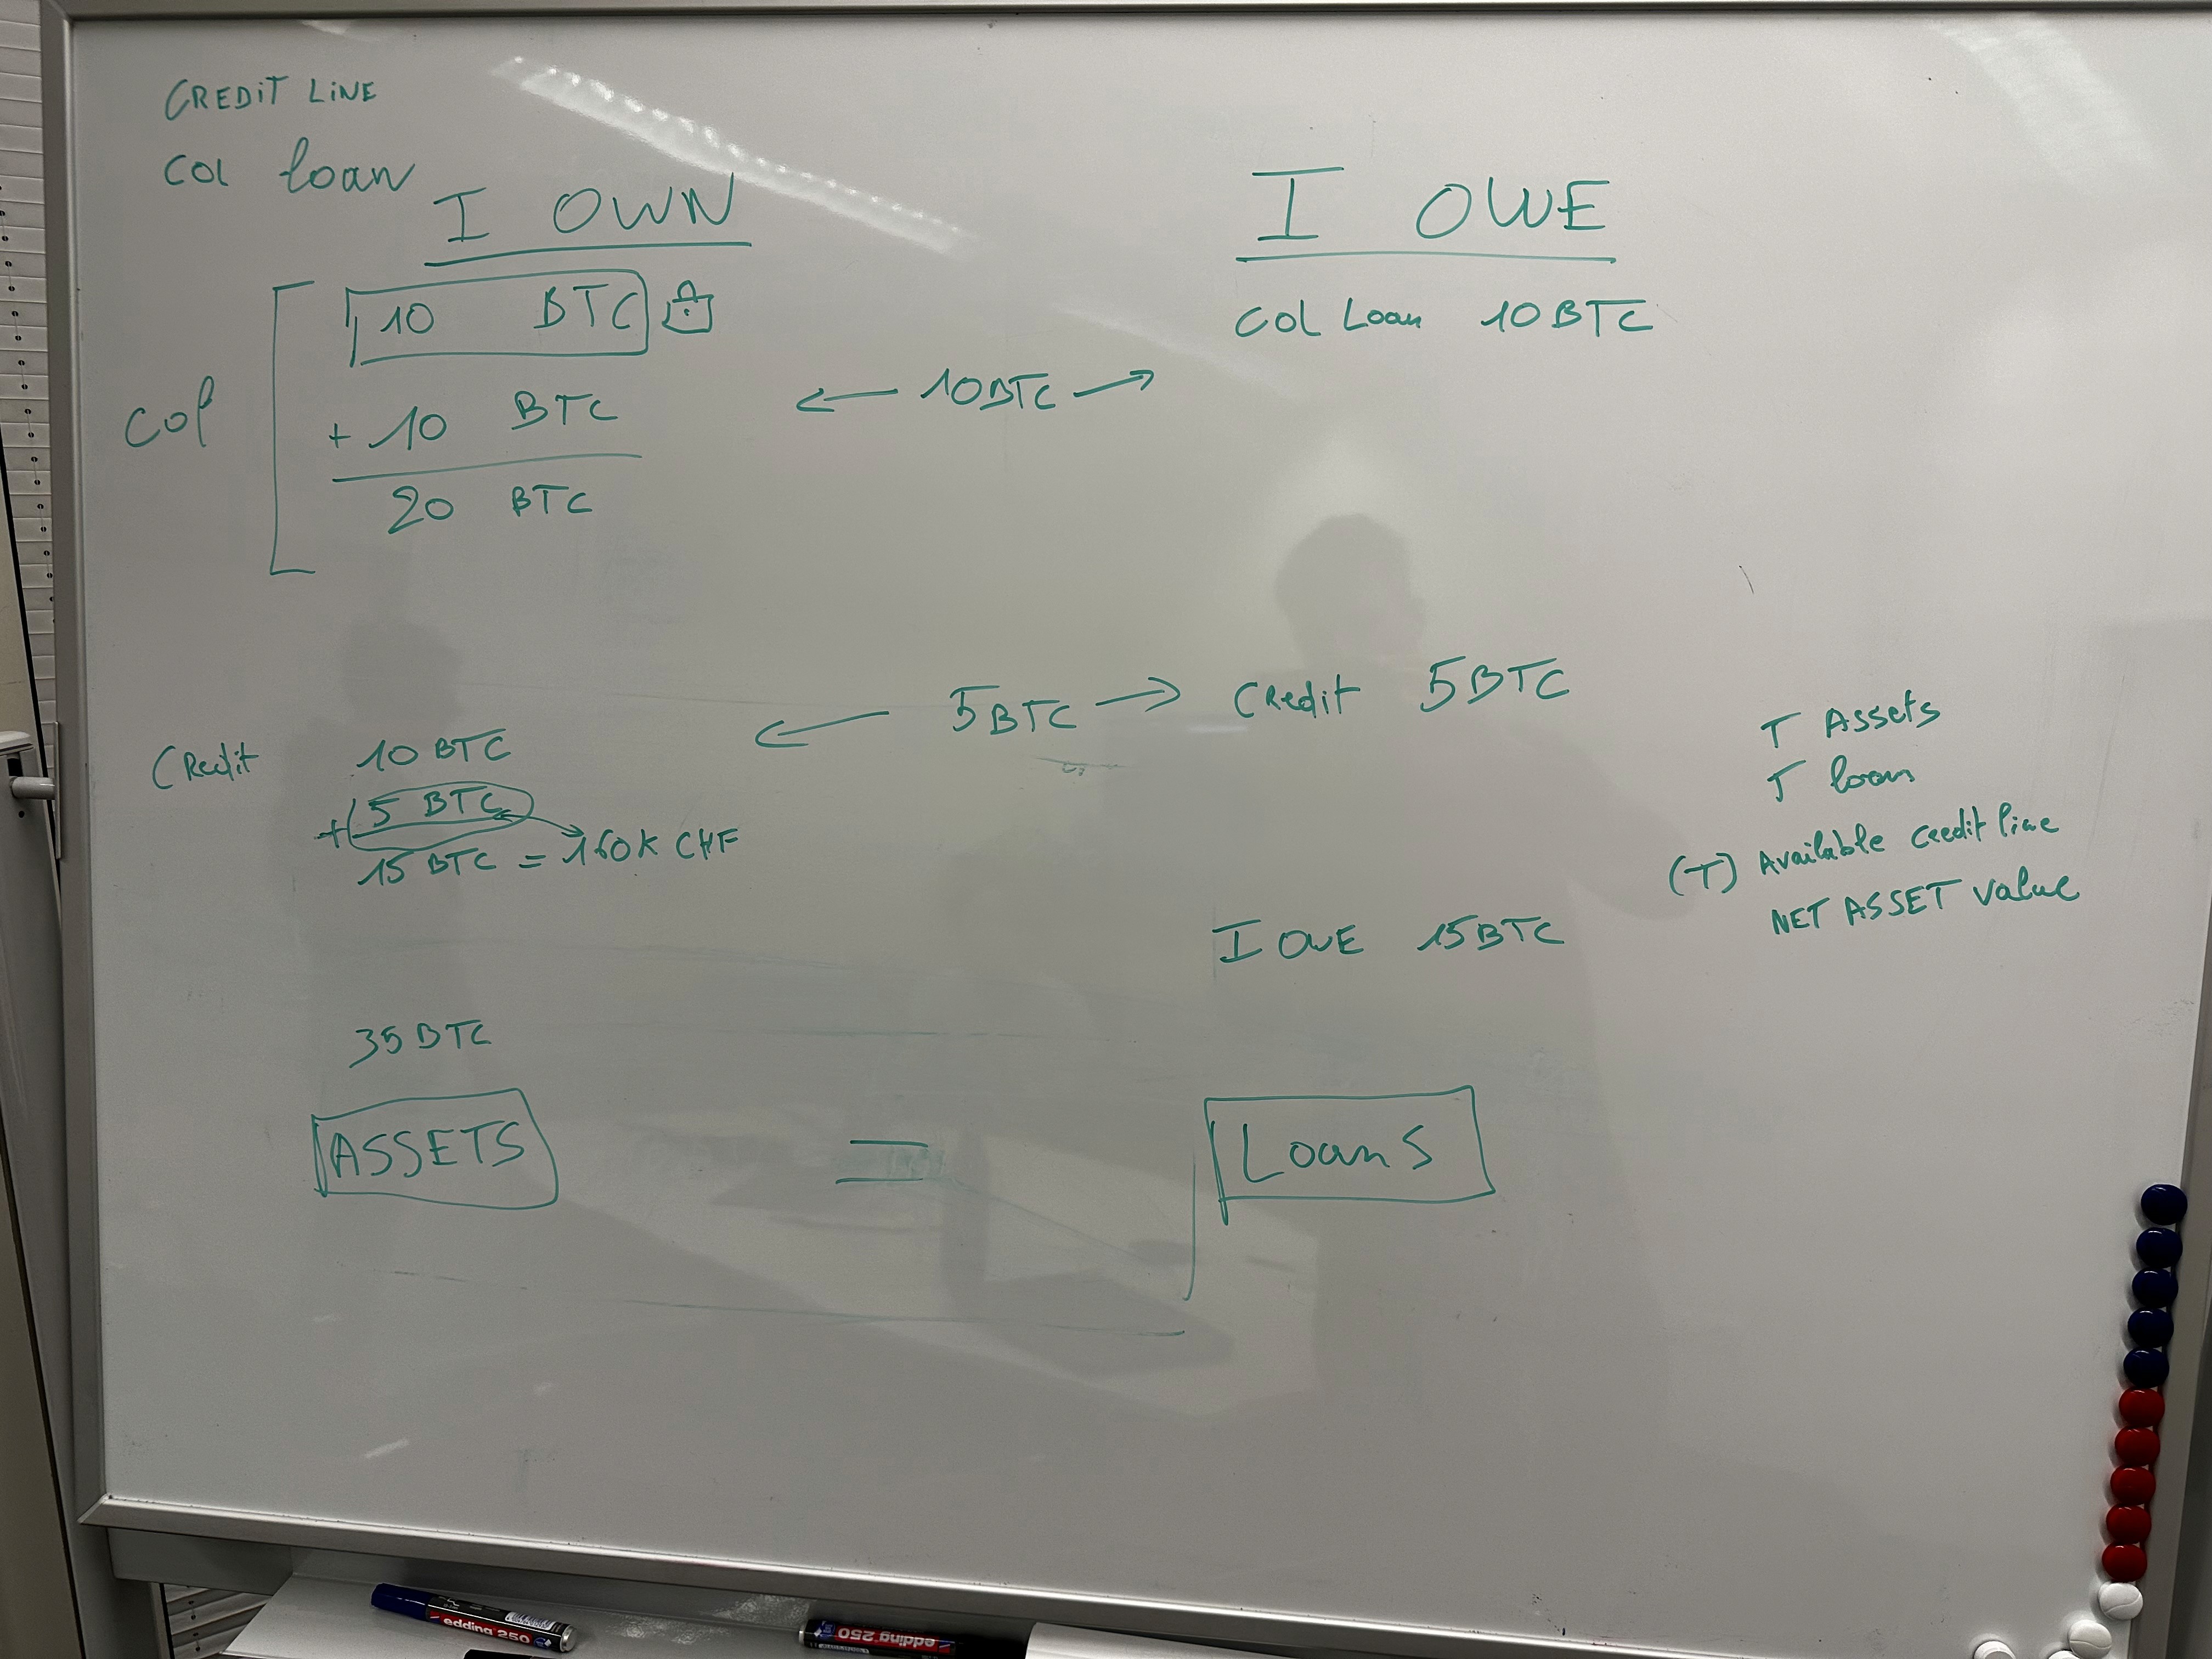 CREDIT LINE
col loan
I OWN
I OWE
10 BTC
col Loan 10 BTC
← 10 BTC →
col
+ 10 BTC
20 BTC
← 5 BTC →
Credit 5 BTC
Credit
10 BTC
+ 5 BTC
15 BTC = 160K CHF
T Assets
T loan
(T) Available credit line
NET ASSET value
I OWE 15 BTC
35 BTC
ASSETS
=
Loans
edding 250
edding 250